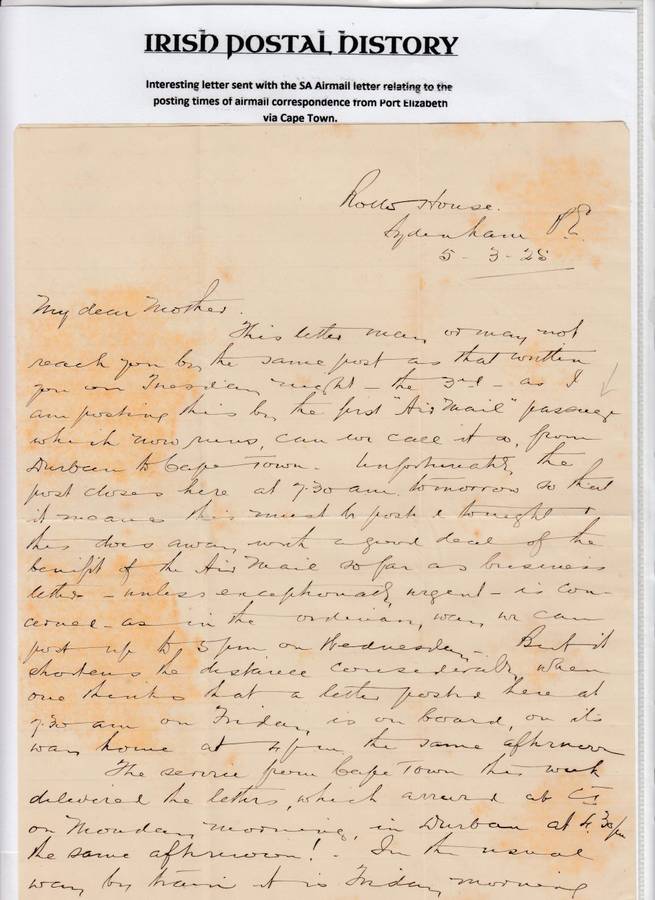 IRISH POSTAL HISTORY
Interesting letter sent with the SA Airmail letter relating to the
posting times of airmail correspondence from Port Elizabeth
via Cape Town.
House.
Sydenham P.E.
5-3-25
My dear Mother.
This letter may or may not
reach you by the same post as that written
you on Tuesday night - the 3rd - as I
am posting this by the first "Air Mail" passenger
which now runs, can we call it so, from
Durban to Cape Town. Unfortunately the
post closes here at 7.30 am tomorrow so that
it means this must be posted tonight &
this does away with a good deal of the
benefit of the Air Mail so far as business
letters - unless exceptionally urgent - is con-
cerned - as in the ordinary way we can
post up to 5 pm on Wednesday. But it
shortens the distance considerably when
one thinks that a letter posted here at
7.30 am on Friday is on board, on its
way home at 4 pm the same afternoon
The service from Cape Town this week
delivered the letters, which arrived at CT
on Monday morning, in Durban at 4.30 pm
the same afternoon! - In the usual
way by train it is Friday morning